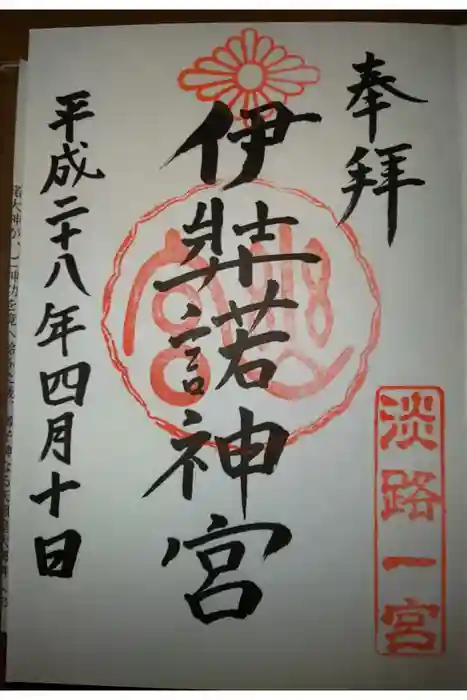 奉拝
伊弉諾神宮
平成二十八年四月十日
淡路一宮